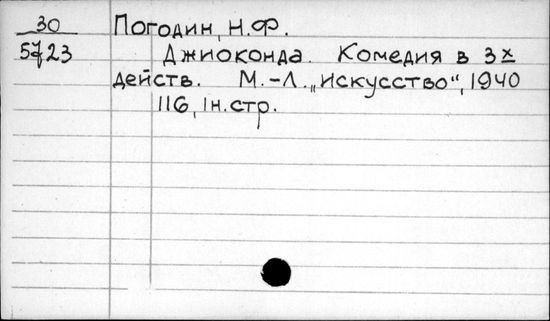 30
Погодин, Н.Ф.
5723
Джиоконда. Комедия в 3х
действ. М.-Л. „искусство“, 1940
116, 1н.стр.